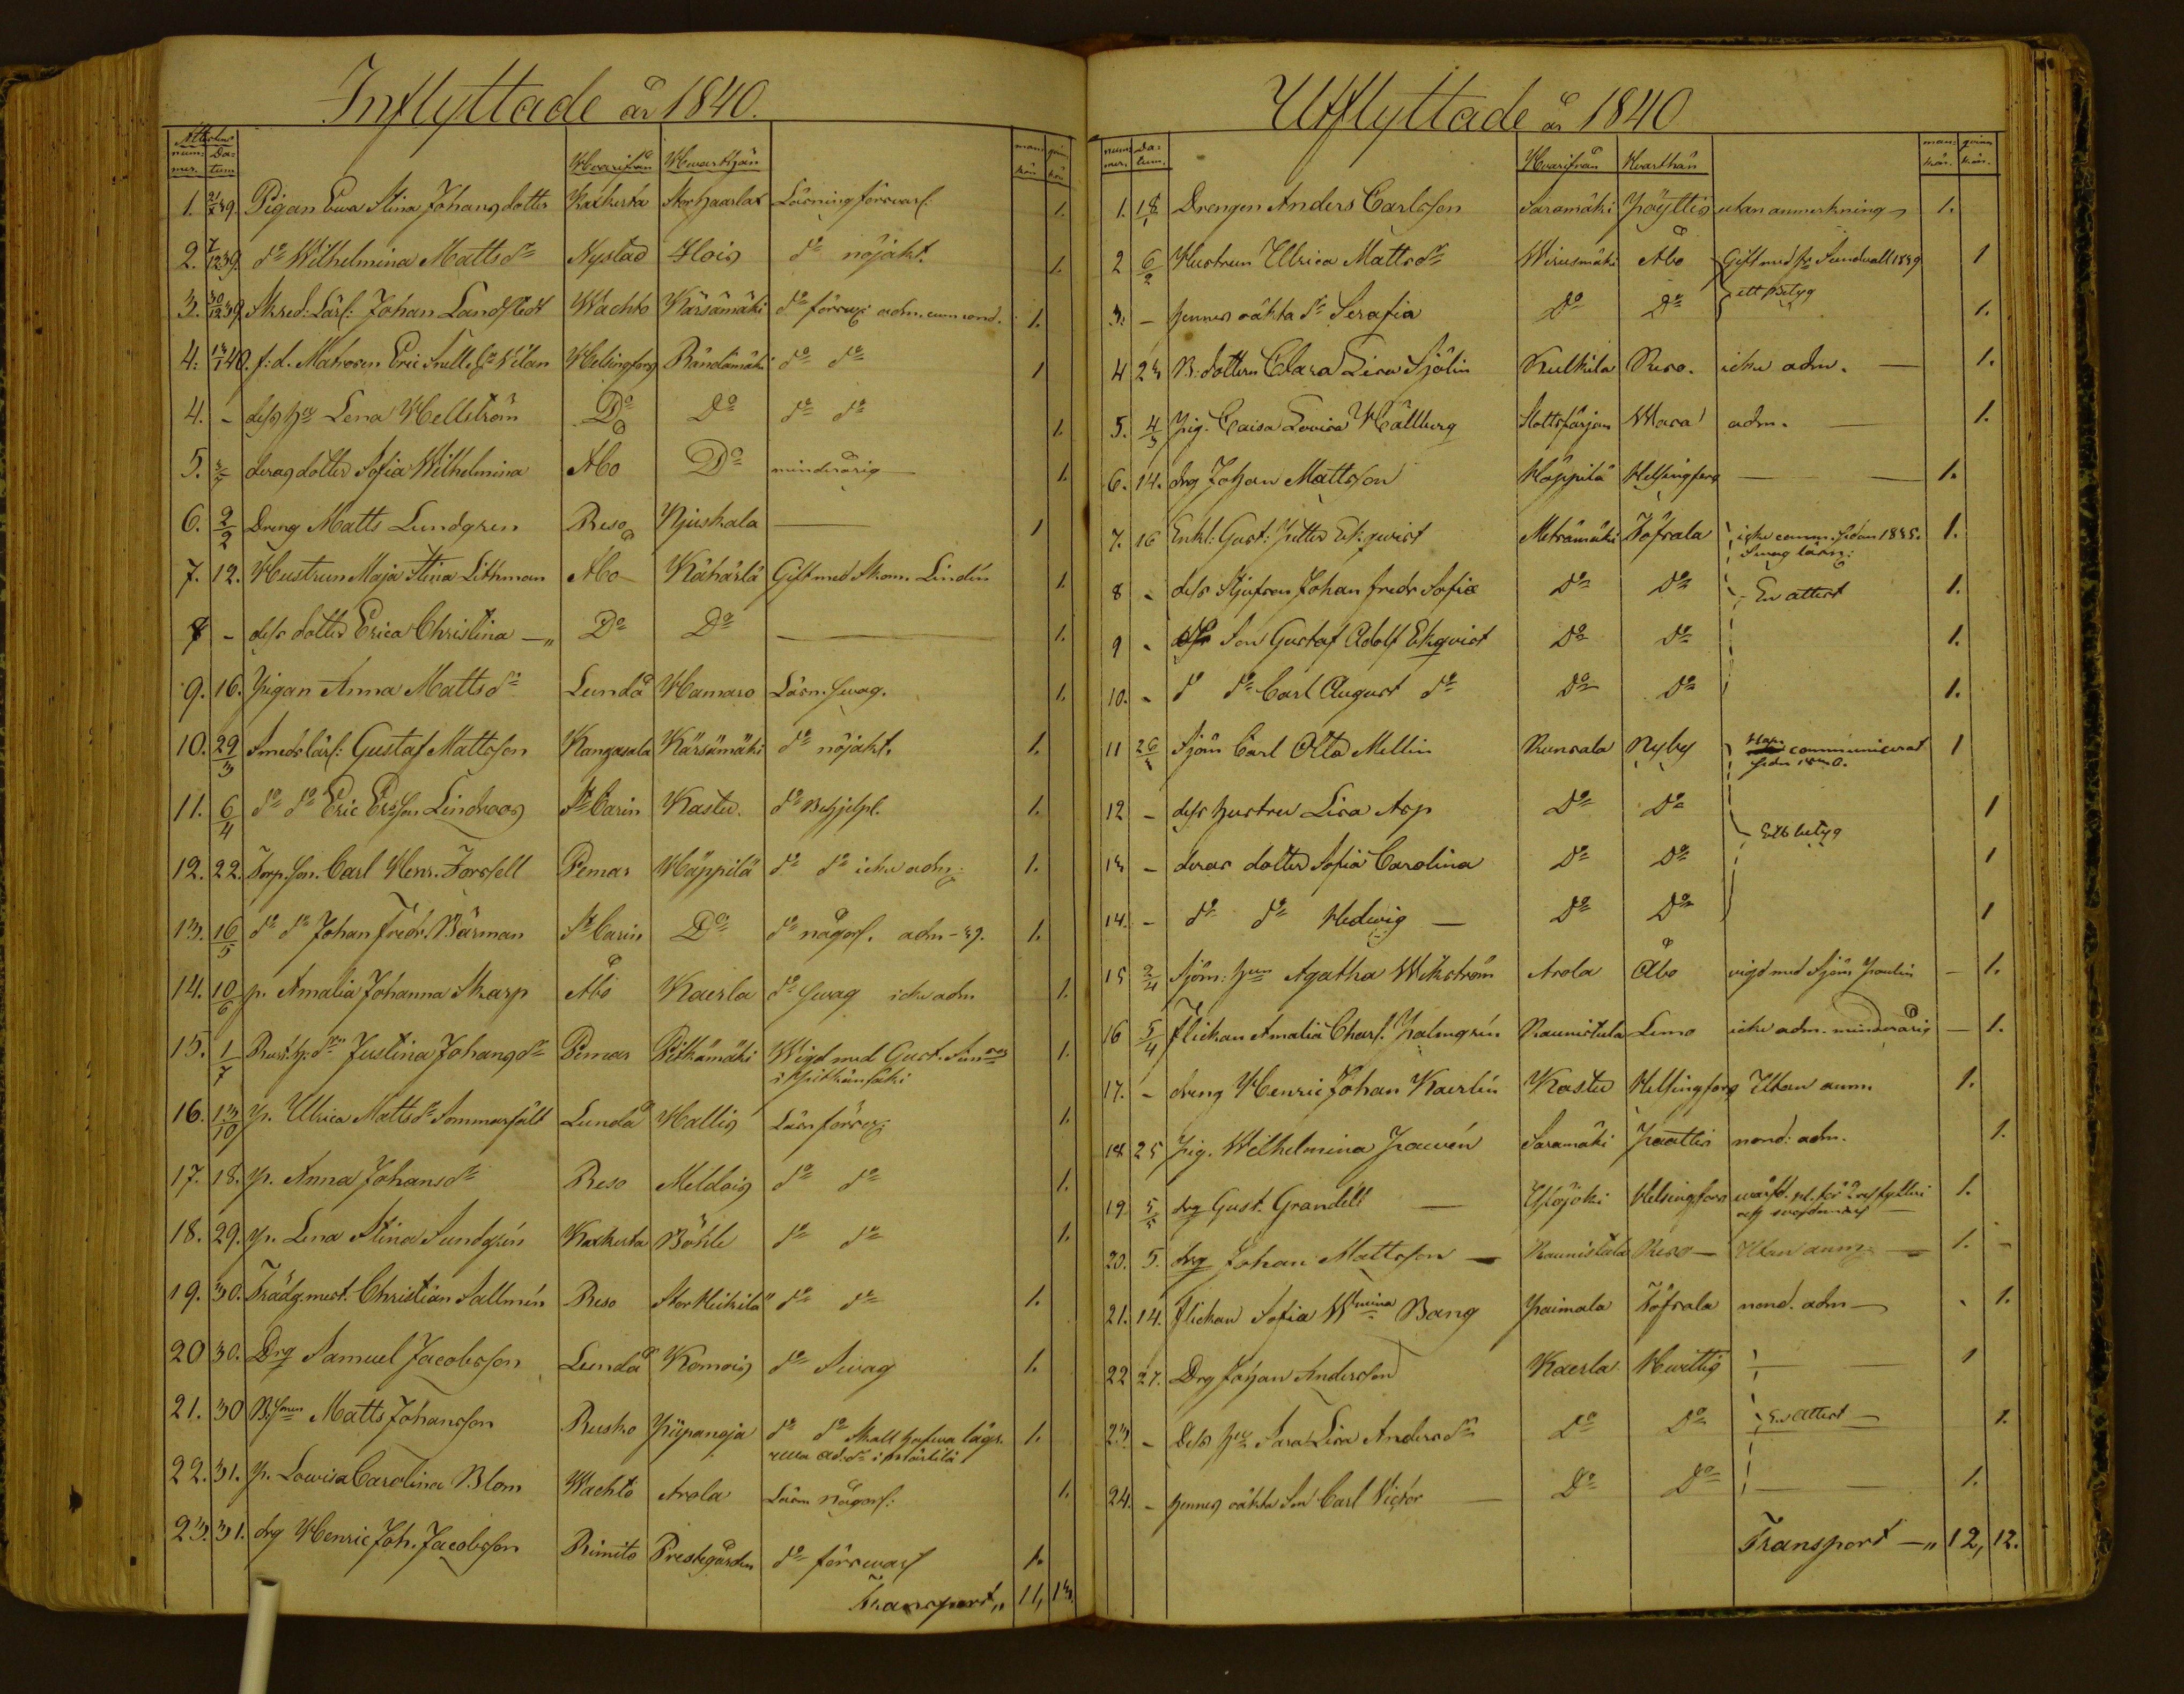 Inflyttade år 1840.
Attestens
num: mer. Da: tum Hvarifrån Hvarthän man: kön qvin: kön
1. 21/7 39. Pigan Ewa Stina Johansdotter Kaxkerta Stor Haarla Läsning försvarl: 1.
2. 7/12 39. do Wilhelmina Mattsdr Nystad Ilois do nöjakt. 1.
3. 30/12 39 Skred: Lärl: Johan Landstedt Wachto Kärsämäki do försvarl: adm. 1.
4. 13/1 40. f: d. Matrosen Eric Wilan Helsingfors Räntämäki do do 1
4. - dess hu Lena Hellström Do Do do do 1.
5. deras dotter Sofia Wilhelmina Åbo Do minderårig 1.
6. 2/2 Dreng Matts Lundgren Reso Njuskala 1
7. 12. Hustrun Maja Stina Lithman Åbo Kähärlä Gift med Skom. Lindén 1.
8 - dess dotter Erica Christina Do Do 1.
9. 16. Pigan Anna Mattsdr Lundå Hamaro Läsn. swag. 1.
10. 29/3 Smedslärl: Gustaf Mattsson Kangasala Kärsämäki do nöjakt. 1.
11. 6/4 do do Eric Ersson Lindroos St Carin Kastu. do Behjelpl. 1.
12. 22. Torp. son. Carl Henr. Forssell Pemar Häppilä do do icke adm: 1.
13. 16/5 do do Johan Fredr. Bärman St Carin Do do någorl. adm - 39. 1.
14. 10/6 p. Amalia Johanna Skarp Åbo Kaerla do swag icke adm 1.
15. 1/7 Rust. h. dr Justina Johansdr Pemar Pitkämäki Wigd med Gust.
i Pitkämäki 1.
16. 13/10 p. Ulrica Mattsdr Sommarfält Lundå Hallis Läsn försvarl: 1.
17. 18. p. Anna Johansdr Reso Mildois do do 1.
18. 29. p. Lena Stina Sundgrén Kaxkerta Böhle do do 1.
19. 30. Trädg. mest. Christian Sallmén Reso Stor Heikilä do do 1.
20 30. Drg Samuel Jacobsson Lundå Komois do Swag 1.
21. 30 B. Sonen Matts Johansson Rusko Piipanoja do do Skall hafwa lägr.
1.
22. 31. p. Lowisa Carolina Blom Wachto Arola Läsn någorl: 1.
23. 31. drg Henric Joh. Jacobsson Rimito Prestgården do försvarl 1.
Transport,, 11, 13.
Utflyttade år 1840
num: mer. Da: tum. Hvarifrån Hvarthän man: kön. qvinn: kön.
1. 18/1 Drengen Anders Carlsson Saramäki Pöyttis utan anmerkning 1.
2 6/2 Hustrun Ulrica Mattsdr Wirusmäki Åbo Gift med Sundvall 1839 1
3. - hennes oäkta dr Serafia Do Do ett betyg 1.
4 23 B: dottern Clara Lisa Sjölin Kulkila Reso. icke adm. 1.
5. 4/3 Pig. Caisa Lovisa Hällberg Slottsfärjan Wasa adm. 1.
6. 14. drg Johan Mattsson Häppilä Helsingfors 1.
7. 16 Enkl: Gust: Petter Ekqvist Metsämäki Töfsala icke comm. sedan 1835.
Swag läsn: 1.
8 - dess Stjufson Johan Fredr Sofiæ do do En attest 1.
9 - dess Son Gustaf Adolf Ekqvist Do do 1.
10. - do do Carl August do Do do 1.
11 26/3 Sjöm Carl Otto Mellin Runsala Nyby Har communicerat
1
12 - dess hustru Lisa Asp Do Do 1
13 - deras dotter Sofia Carolina Do Do Ett betyg 1
14. - do do Hedvig Do Do 1
15 2/4 Sjöm: hun Agatha Wikström Arola Åbo vigd med Sjöm Paulin 1.
16 5/4 Flickan Amalia Charl. Palmgrén Raunistula Lemo icke adm. minderårig 1.
17. - dreng Henric Johan Kaerlin Kastu Helsingfors Utan anm. 1.
18 25 Pig. Wilhelmina Pawén Saramäki Paattis nond: adm. 1.
19 5/5 drg Gust. Grandell Ypsjoki Helsingfors
1.
20. 5. drg Johan Mattsson Raunistula Reso Utan anm: 1.
21. 14. Flickan Sofia Whmina Bang Paimala Töfsala nond. adm 1.
22 27. Drg Johan Andersson Kaerla Hvittis 1
23. - Dess hu Sara Lisa Andersdr Do Do En Attest 1.
24. - hennes oäkta Son Carl Victor Do Do 1.
Transport 12, 12.